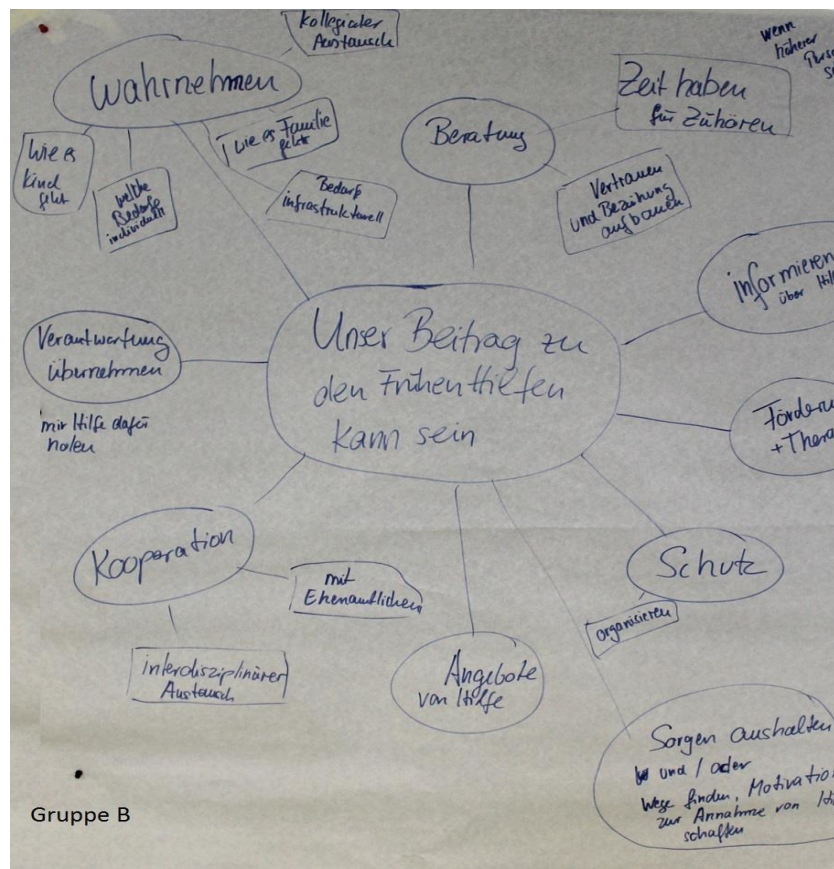 Kollegialer
Austausch
Wahrnehmen
Wie es
Kind
geht
welche
Bedarfe
individuell
wie es Familie
geht
Bedarf
infrastrukturell
Beratung
Zeit haben
für Zuhören
Vertrauen
und Beziehung
aufbauen
wenn
höherer
Informieren
über Hil
Verantwortung
übernehmen
mir Hilfe dafür
holen
Unser Beitrag zu
den Frühen Hilfen
kann sein
Förderu
+ Thera
Kooperation
mit
Ehrenamtlichen
interdisziplinärer
Austausch
Angebote
von Hilfe
Schutz
organisieren
Sorgen aushalten
und / oder
Wege finden, Motivation
zur Annahme von Hi
schaffen
Gruppe B